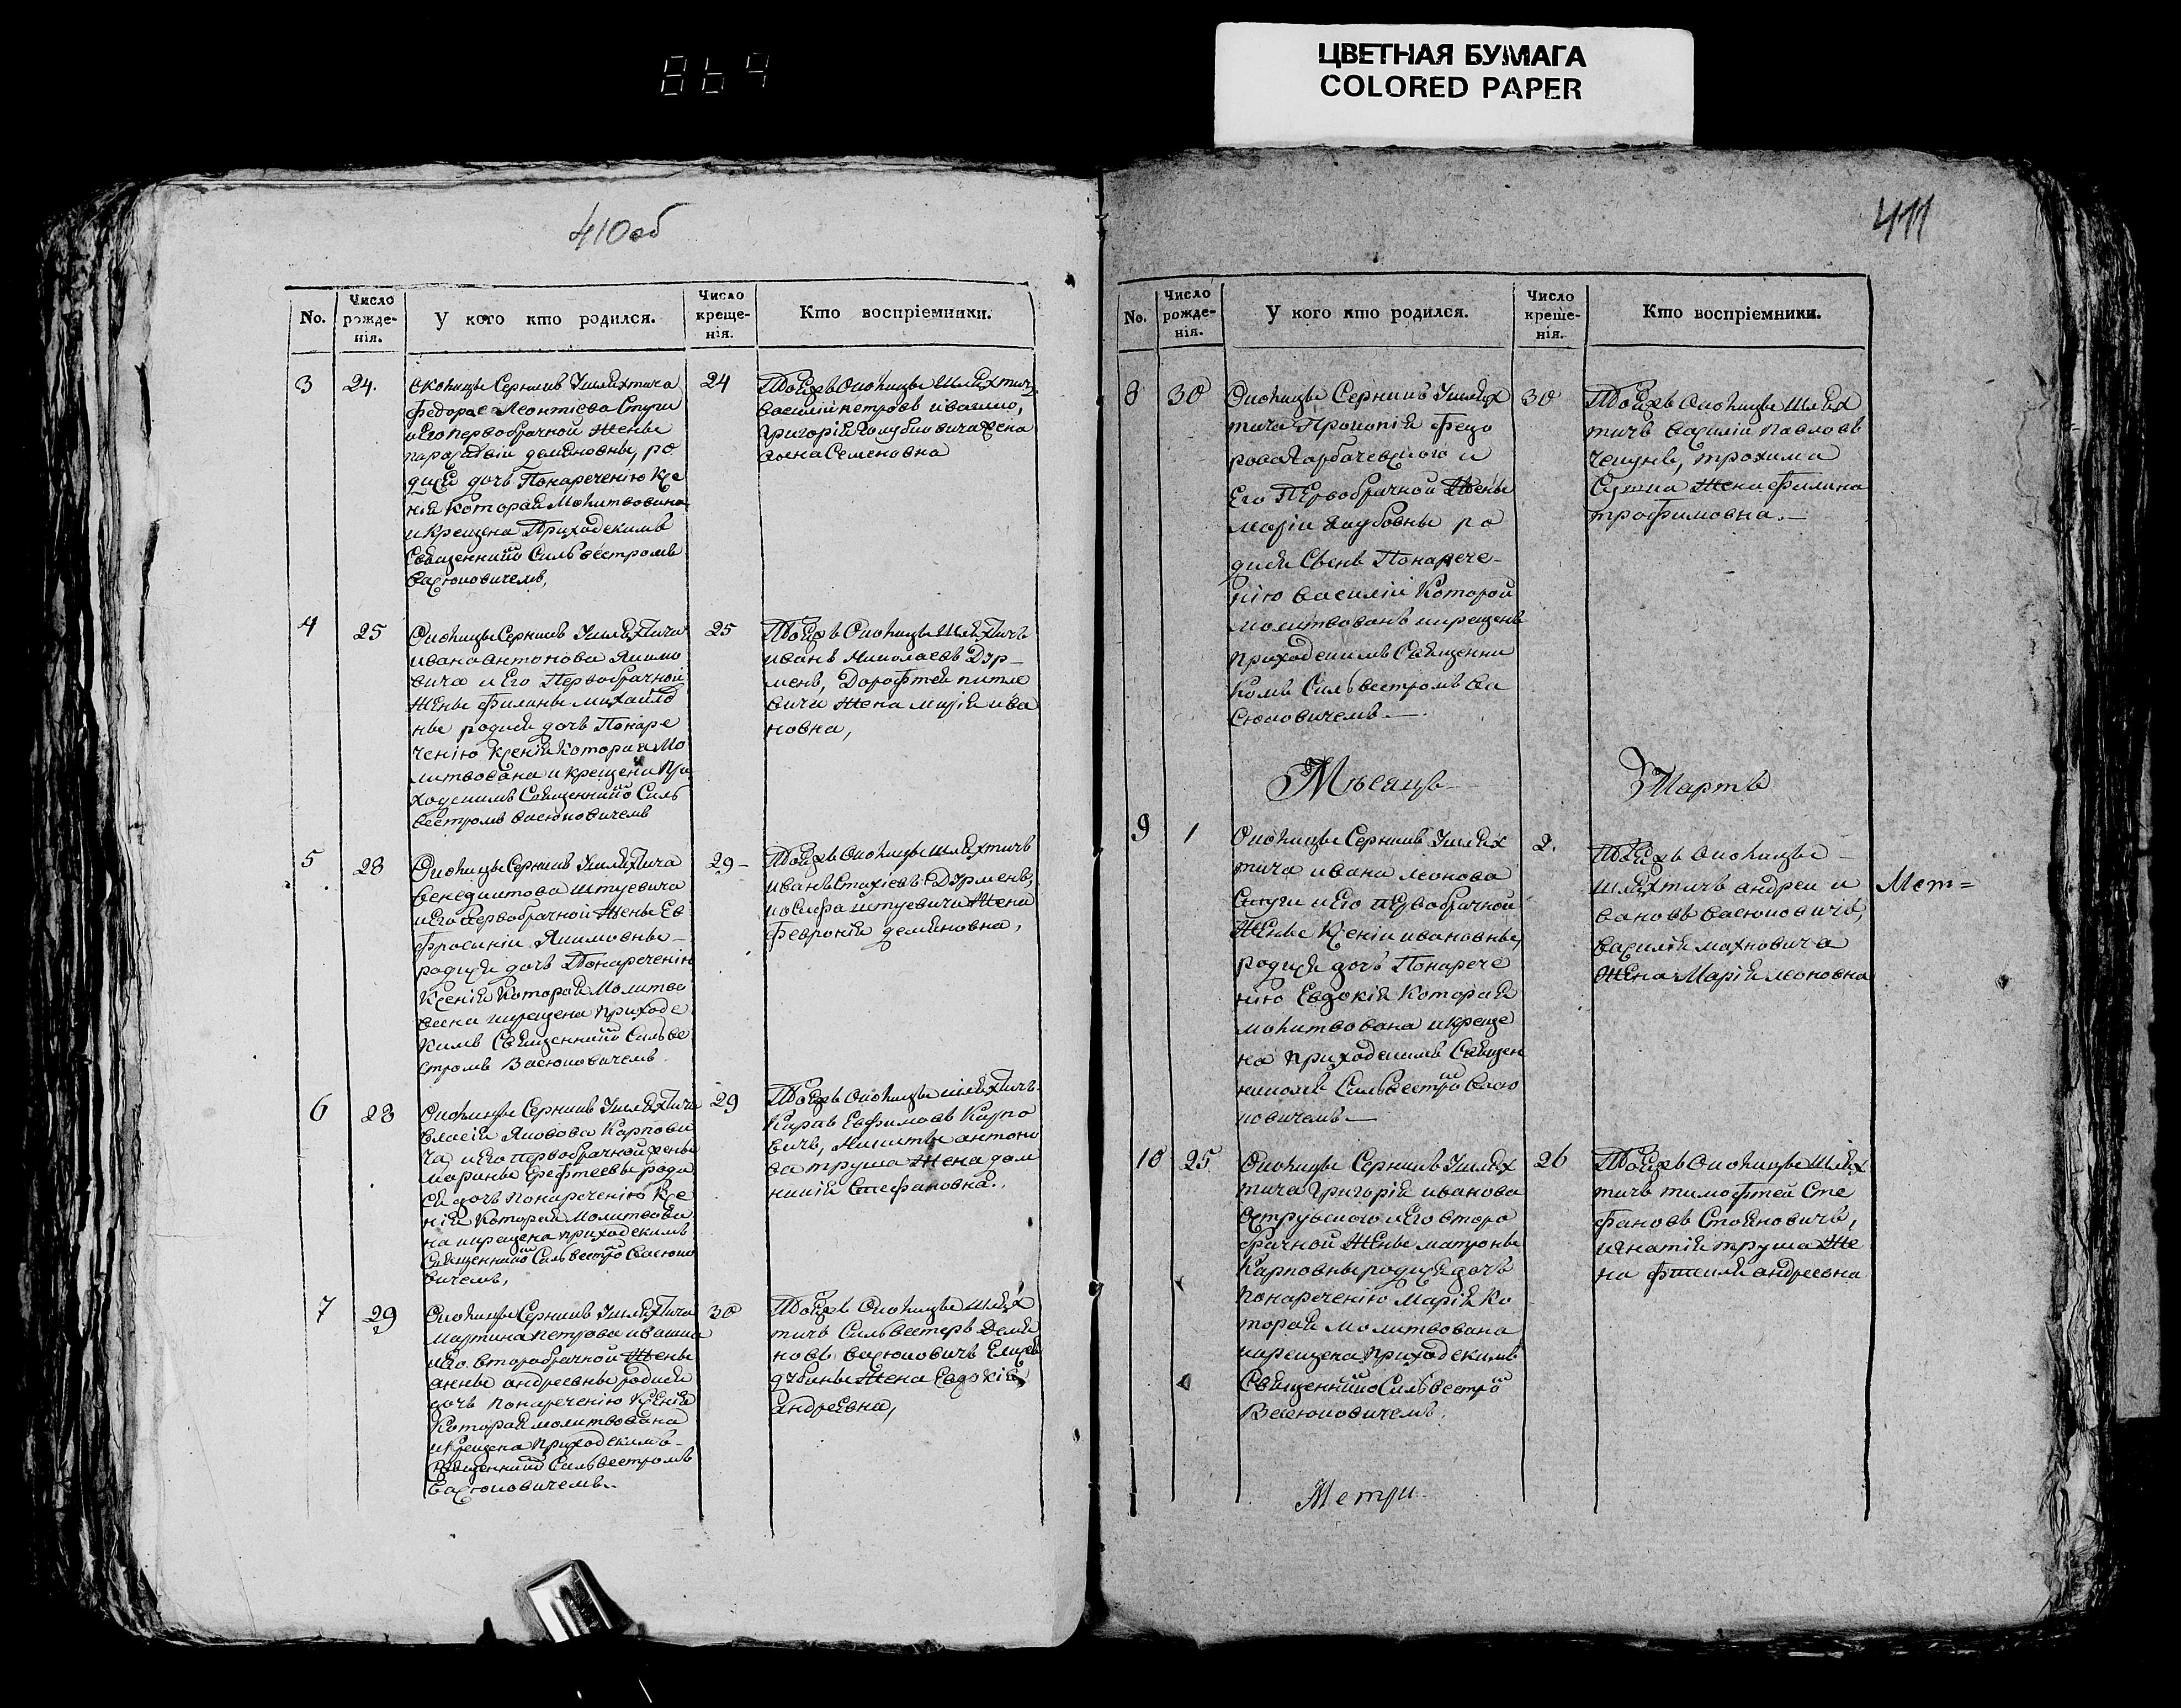 864
ЦВЕТНАЯ БУМАГА
COLORED PAPER
410об
No.
Число рожденія.
У кого кто родился.
Число крещенія.
Кто воспріемники.
3
24.
околицы Серникъ Ушляхтича
федора Леонтіева Стуги
и Его первобрачной жены
параскевіи демяновны, ро
дися дочъ Понареченію Ксе
нія Которая Молитвована
и крещена Приходскимъ
Священнико Сильвестромъ
Васюковичемъ,
24
Тойжъ Околицы Шляхтичъ
василій петровъ ивашко,
Григорія Голубовича жена
Семеновна
4
25
Околицы Серникъ Ушляхтича
ивана антонова Якимо
вича и Его Первобрачной
Жены филины михайло
ны родися дочъ Понаре
ченію Ксенія Которая Мо
литвована и крещена При
ходскимъ Священнико Силь
вестромъ васюковичемъ
25
Тойжъ Околицы Шляхтичъ
иванъ Николаевъ Дзр
менъ, Дорофтея питке
вича Жена марія ива
новна,
5
28
Околицы Серникъ Ушляхтича
венедиктова штуевича
и Его Первобрачной Жены Ев
фросиніи Якимовны
родися дочъ Понареченію
Ксенія Которая Молитво
вана икрещена Приходс
кимъ Священнико Сильве
стромъ Васюковичемъ.
29
Тойжъ Околицы шляхтичъ
иванъ Стахіевъ Дзрменъ,
иосифа штуевича Жена
Февронія демяновна,
6
28
Околицы Серникъ Ушляхтича
власія Яковова Карпови
ча и Его первобрачной жены
марины Ерефтеевы роди
ся дочъ понареченію Ксе
нія Которая Молитвова
на икрещена приходскимъ
Священнико Сильвестро Васюко
вичемъ,
29
Тойжъ Околицы шляхтичъ
Карпъ Евфимовъ Карпо
вичъ, Никиты антоно
ва труша Жена дом
никія Стефановна.
7
29
Околицы Серникъ Ушляхтича
Мартина петрова ивашка
иЕго второбрачной Жены
анны андреевны родися
дочъ понареченію Ксенія
Которая молитвована
и Крещена Приходскимъ
Священнико Сильвестромъ
Васюковичемъ.
30
Тойжъ Околицы Шлях
тичъ Сильвестеръ Демя
новъ васюковичъ
Жена Евдокія
андреевна,
411
No.
Число рожденія.
У кого кто родился.
Число крещенія.
Кто воспріемники.
8
30
Околицы Серникъ Ушлях
тича Прокопія Федо
рова Горбачевского и
Его Первобрачной Жены
Маріи Якубовны ро
дися Сынъ Понарече-
нію василій Которой
молитвованъ икрещенъ
Приходскимъ Священни
комъ Сильвестромъ Ва
сюковичемъ.
30
Тойжъ Околицы Шлях
тичъ василій Павловъ
трохима
Жена филина
трофимовна.
Мѣсяцъ
Мартъ
9
1
Околицы Серникъ Ушлях
тича ивана леонова
Стуги и Его первобрачной
Жены Ксеніи ивановны,
родися дочъ Понарече
нію Евдокія Которая
молитвована и креще
на приходскимъ Священ
никомъ Сильвестро васю
ковичемъ.
2.
Тойжъ Околицы
Шляхтичъ андреи и
вановъ васюковичъ,
василія махновича
Жена Марія леоновна
Мет=
10
25
Околицы Серникъ Ушлях
тича Григорія иванова
острувского и Его второ
брачной Жены матроны
Карповны родися дочъ
понареченію Марія Ко
торая молитвована
икрещена приходскимъ
Священнико Сильвестро
Васюковичемъ.
26
Тойжъ Околицы Шлях
тичъ тимофтей Сте
фановъ Стояновичъ,
игнатія труша Же
на андреевна
Метри